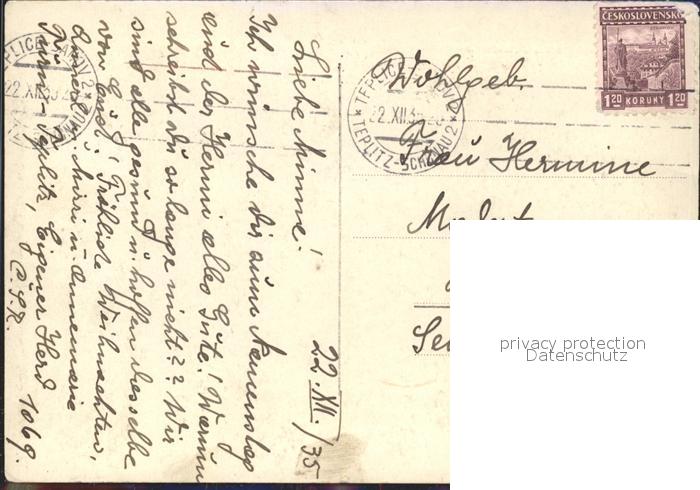 22.XII./35
Liebe Minne!
Ich wünsche dir zum Namenstag
und der Hermi alles Gute! Warum
schreibst du so lange nicht?? Wir
sind alle gesund u. hoffen dasselbe
von Euch! Fröhliche Weihnachten,
u. Annemarie
Teplitz, Eigener Herd 1069.
Č.S.R.
TEPLITZ-SCHÖNAU 2
22.XII.35
ČESKOSLOVENSKO
1.20 KORUNY 1.20
TEPLITZ-SCHÖNAU 2
22.XII.35
Wohlgeb.
Frau Hermine
privacy protection
Datenschutz